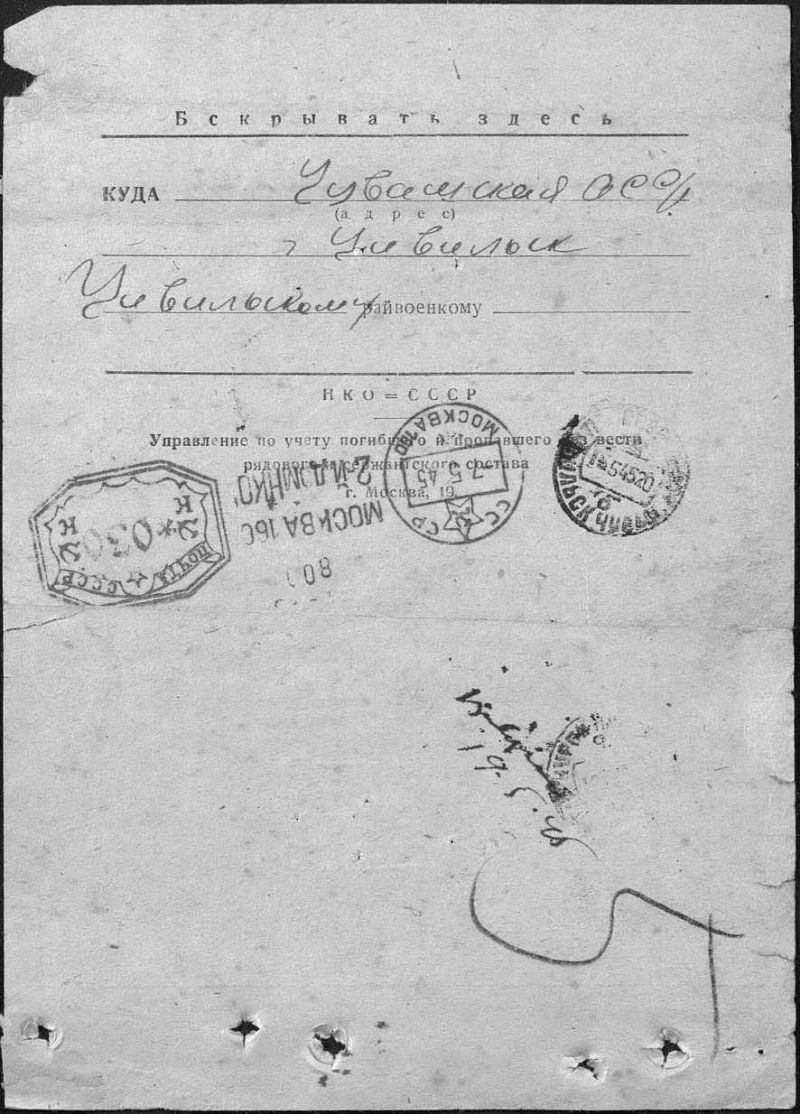 Вскрывать здесь
КУДА Чувашская АССР
(адрес)
г Цивильск
Цивильскому райвоенкому
НКО = СССР
Управление по учету погибшего и пропавшего без вести
рядового и сержантского состава
г. Москва, 19
МОСКВА 160
7.5.45
СССР
МОСКВА 160
2-Й ДОМ НКО
80
ПОЧТА СССР
030
К К
19.5.45